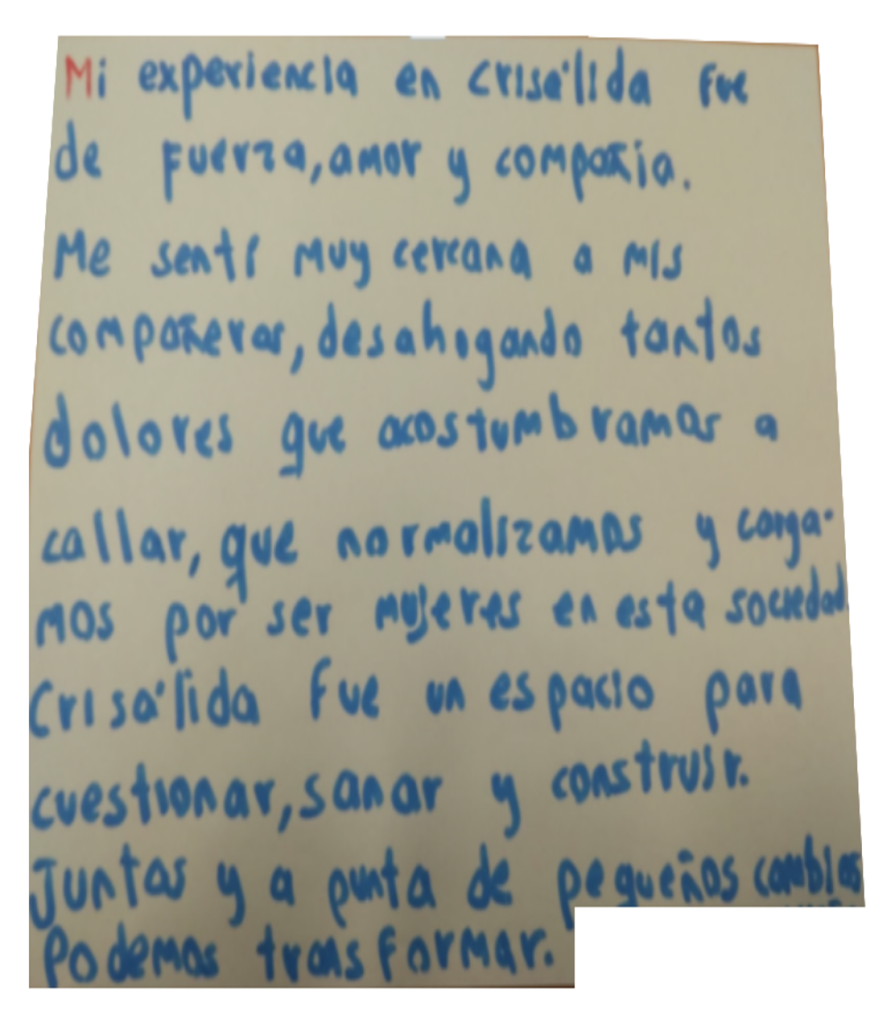 Mi experiencia en Crisálida fue
de fuerza, amor y compañia.
Me sentí muy cercana a mis
compañeras, desahogando tantos
dolores que acostumbramos a
callar, que normalizamos y carga-
mos por ser mujeres en esta sociedad.
Crisálida fue un espacio para
cuestionar, sanar y construir.
Juntas y a punta de pequeños cambios
podemos transformar.